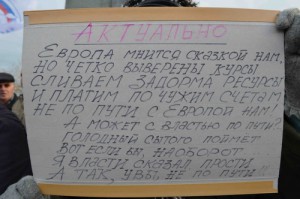 АКТУАЛЬНО
ЕВРОПА МНИТСЯ СКАЗКОЙ НАМ,
НО ЧЕТКО ВЫВЕРЕНЫ КУРСЫ
СЛИВАЕМ ЗАДОРМА РЕСУРСЫ
И ПЛАТИМ ПО ЧУЖИМ СЧЕТАМ
НЕ ПО ПУТИ С ЕВРОПОЙ НАМ!
А МОЖЕТ С ВЛАСТЬЮ ПО ПУТИ?
ГОЛОДНЫЙ СЫТОГО ПОЙМЕТ
ВОТ ЕСЛИ БЫ, НАОБОРОТ
Я ВЛАСТИ СКАЗАЛ ПРОСТИ
А ТАК, УВЫ НЕ ПО ПУТИ